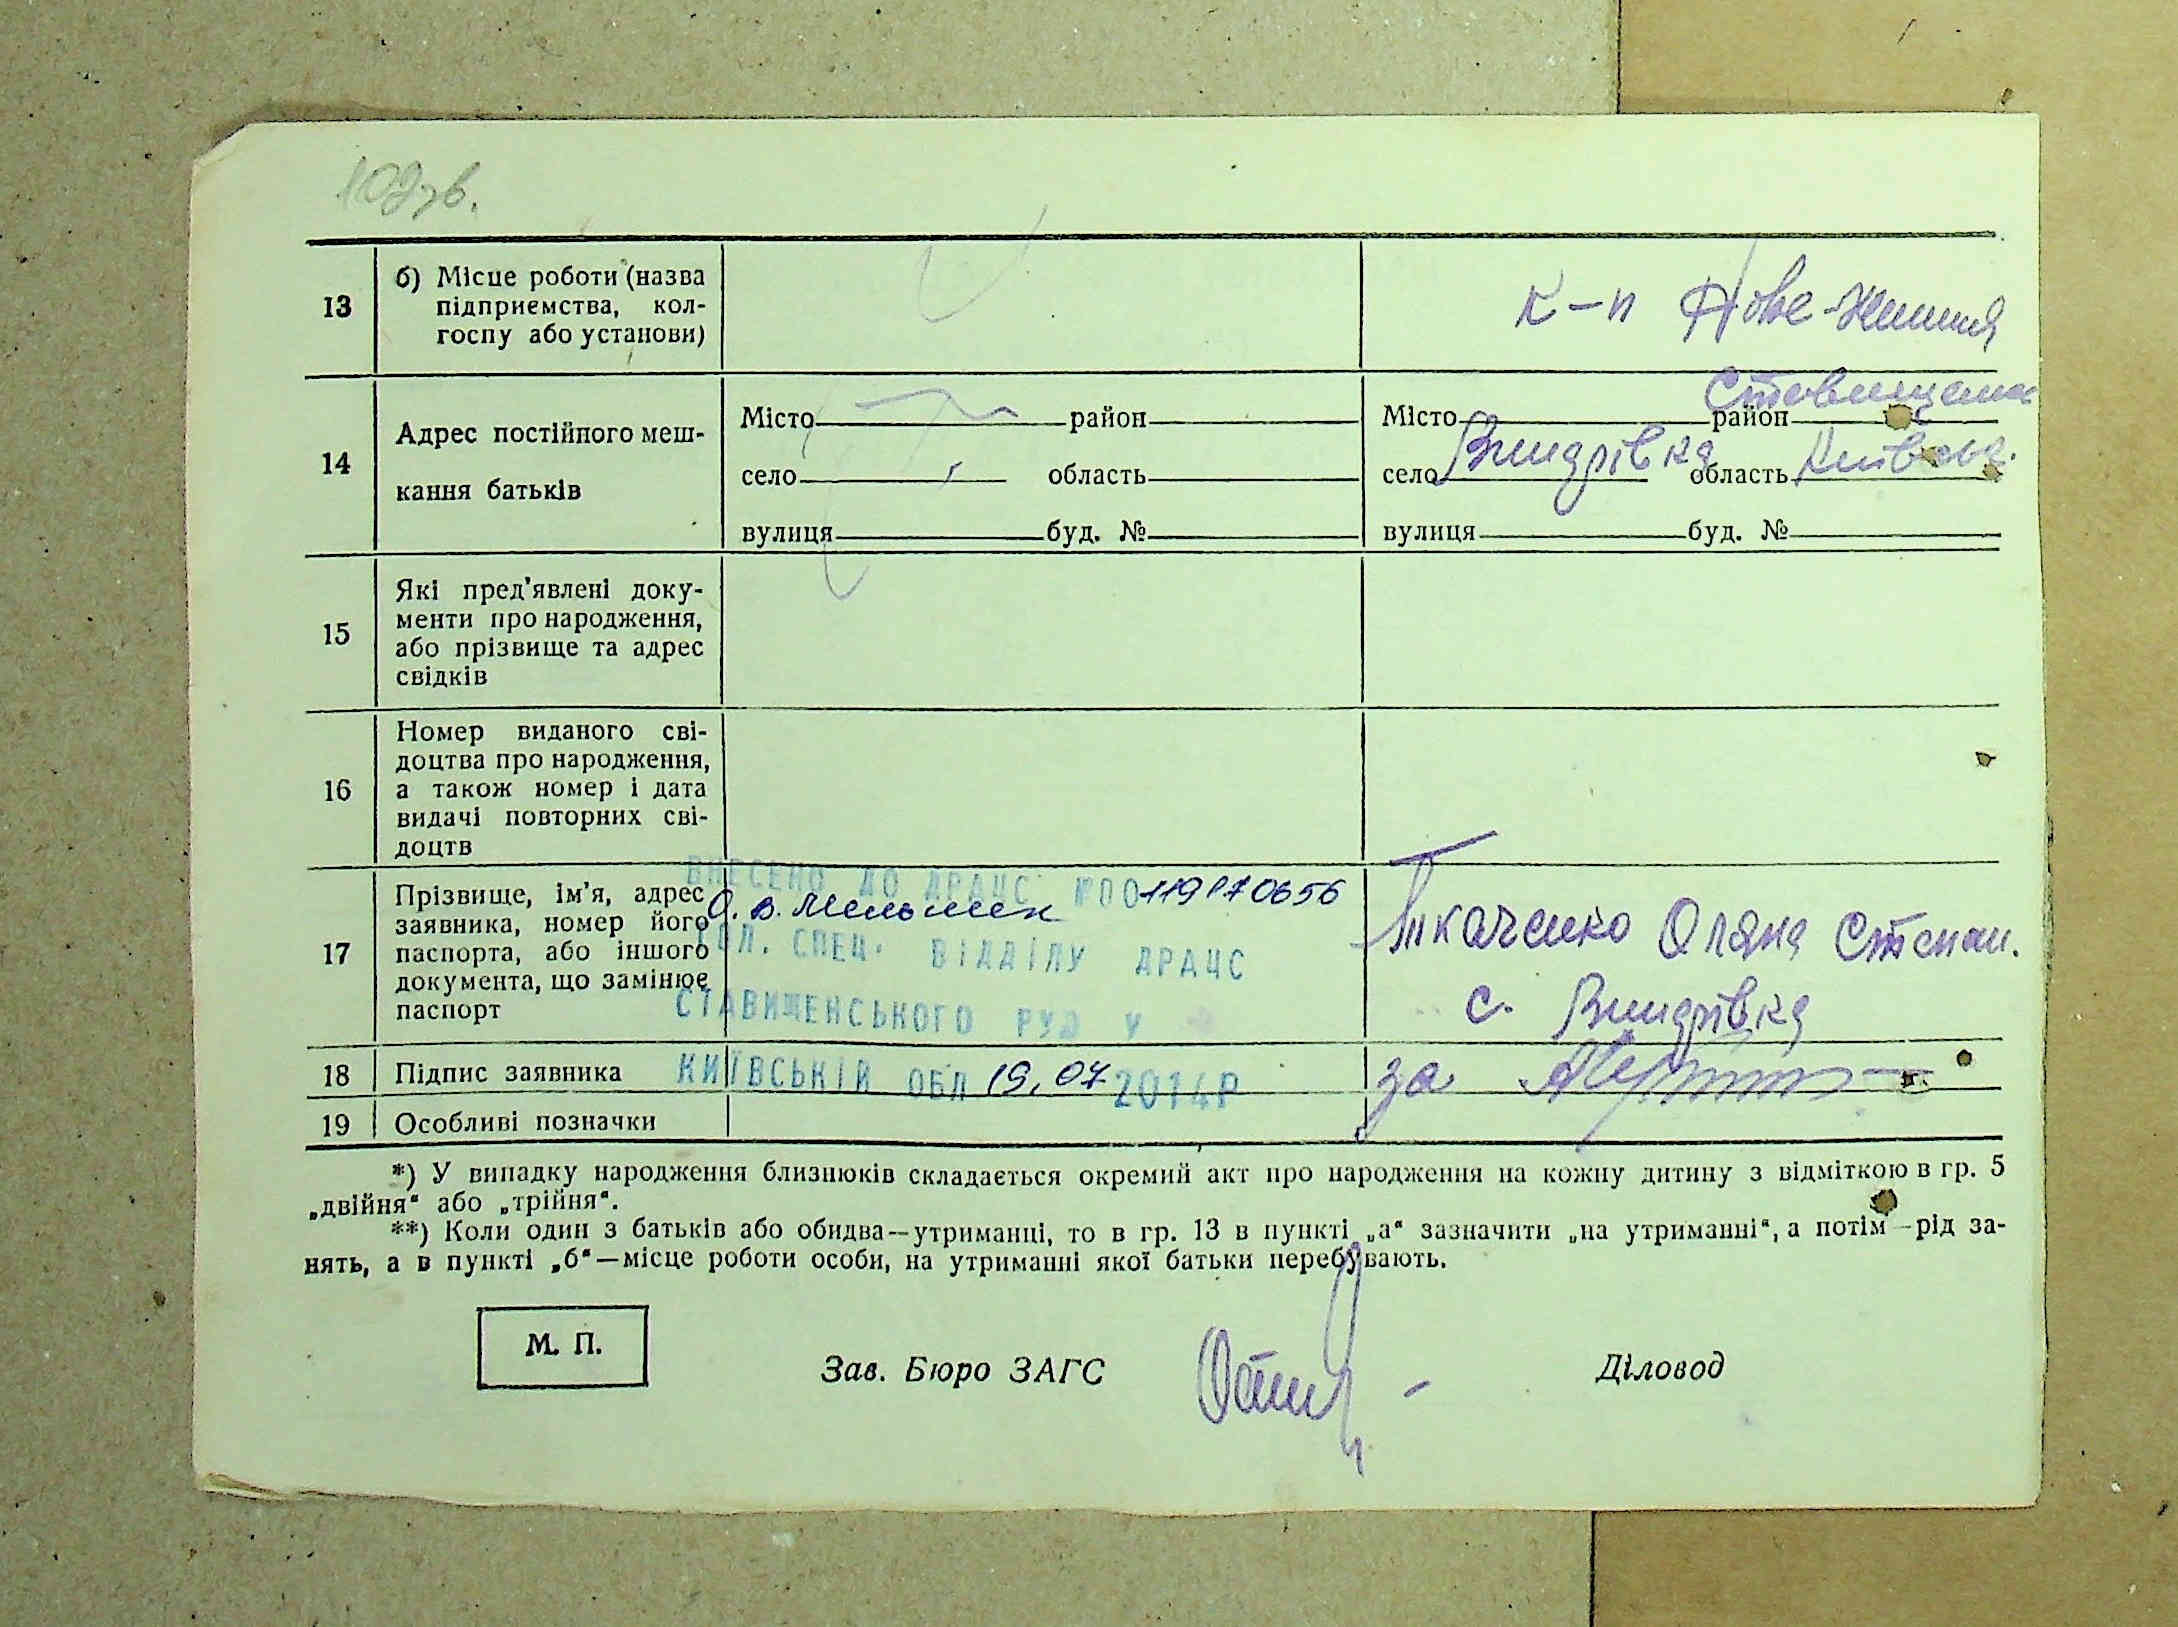 102зв.
13
б) Місце роботи (назва
підприємства, кол-
госпу або установи)
к-п Нове-Життя
14
Адрес постійного меш-
кання батьків
Місто район
село область
вулиця буд. №
Місто район Ставищанс
село Винарівка область Київська.
вулиця буд. №
15
Які пред'явлені доку-
менти про народження,
або прізвище та адрес
свідків
16
Номер виданого сві-
доцтва про народження,
а також номер і дата
видачі повторних сві-
доцтв
17
Прізвище, ім'я, адрес
заявника, номер його
паспорта, або іншого
документа, що замінює
паспорт
ВНЕСЕНО ДО ДРАЦС №00119170656
О. В. Мельник
ГОЛ. СПЕЦ. ВІДДІЛУ ДРАЦС
СТАВИЩЕНСЬКОГО РУЮ У
КИЇВСЬКІЙ ОБЛ 19.07 2014Р
Ткаченко Оляна Степан.
с. Винарівка
18
Підпис заявника
за
19
Особливі позначки
*) У випадку народження близнюків складається окремий акт про народження на кожну дитину з відміткою в гр. 5
„двійня“ або „трійня“.
**) Коли один з батьків або обидва—утриманці, то в гр. 13 в пункті „а“ зазначити „на утриманні“, а потім—рід за-
нять, а в пункті „б“—місце роботи особи, на утриманні якої батьки перебувають.
М. П.
Зав. Бюро ЗАГС
Діловод